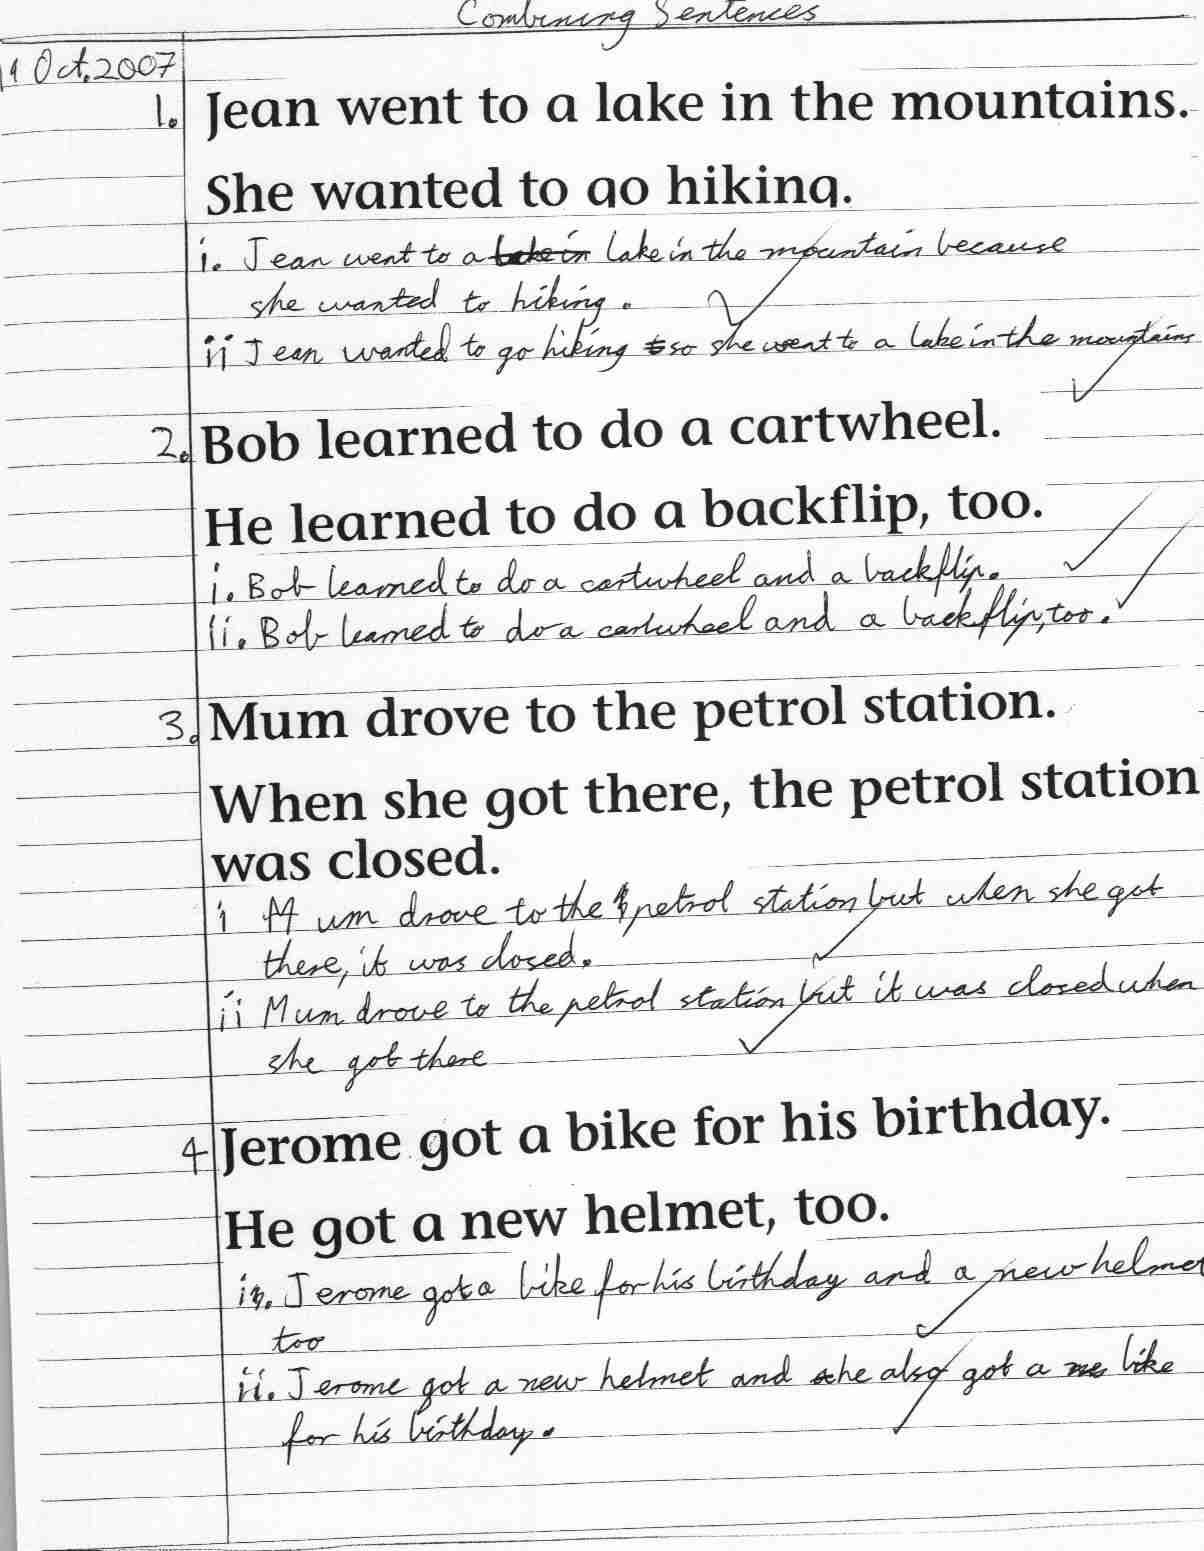 Combining Sentences
19 Oct. 2007
1. Jean went to a lake in the mountains.
She wanted to go hiking.
i. Jean went to a lake in lake in the mountain because
she wanted to hiking.
ii Jean wanted to go hiking so she went to a lake in the mountains
2. Bob learned to do a cartwheel.
He learned to do a backflip, too.
i. Bob learned to do a cartwheel and a backflip.
ii. Bob learned to do a cartwheel and a backflip, too.
3. Mum drove to the petrol station.
When she got there, the petrol station
was closed.
i Mum drove to the petrol station but when she got
there, it was closed.
ii Mum drove to the petrol station but it was closed when
she got there
4 Jerome got a bike for his birthday.
He got a new helmet, too.
i. Jerome got a bike for his birthday and a new helmet
too
ii. Jerome got a new helmet and he also got a bike
for his birthday.